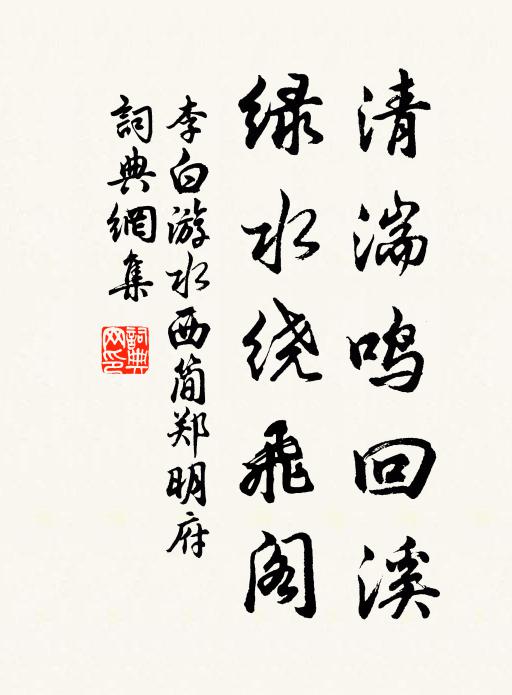 清湍鸣回溪
绿水绕飞阁
李白游水西简郑明府
詞典網集
詞典网印